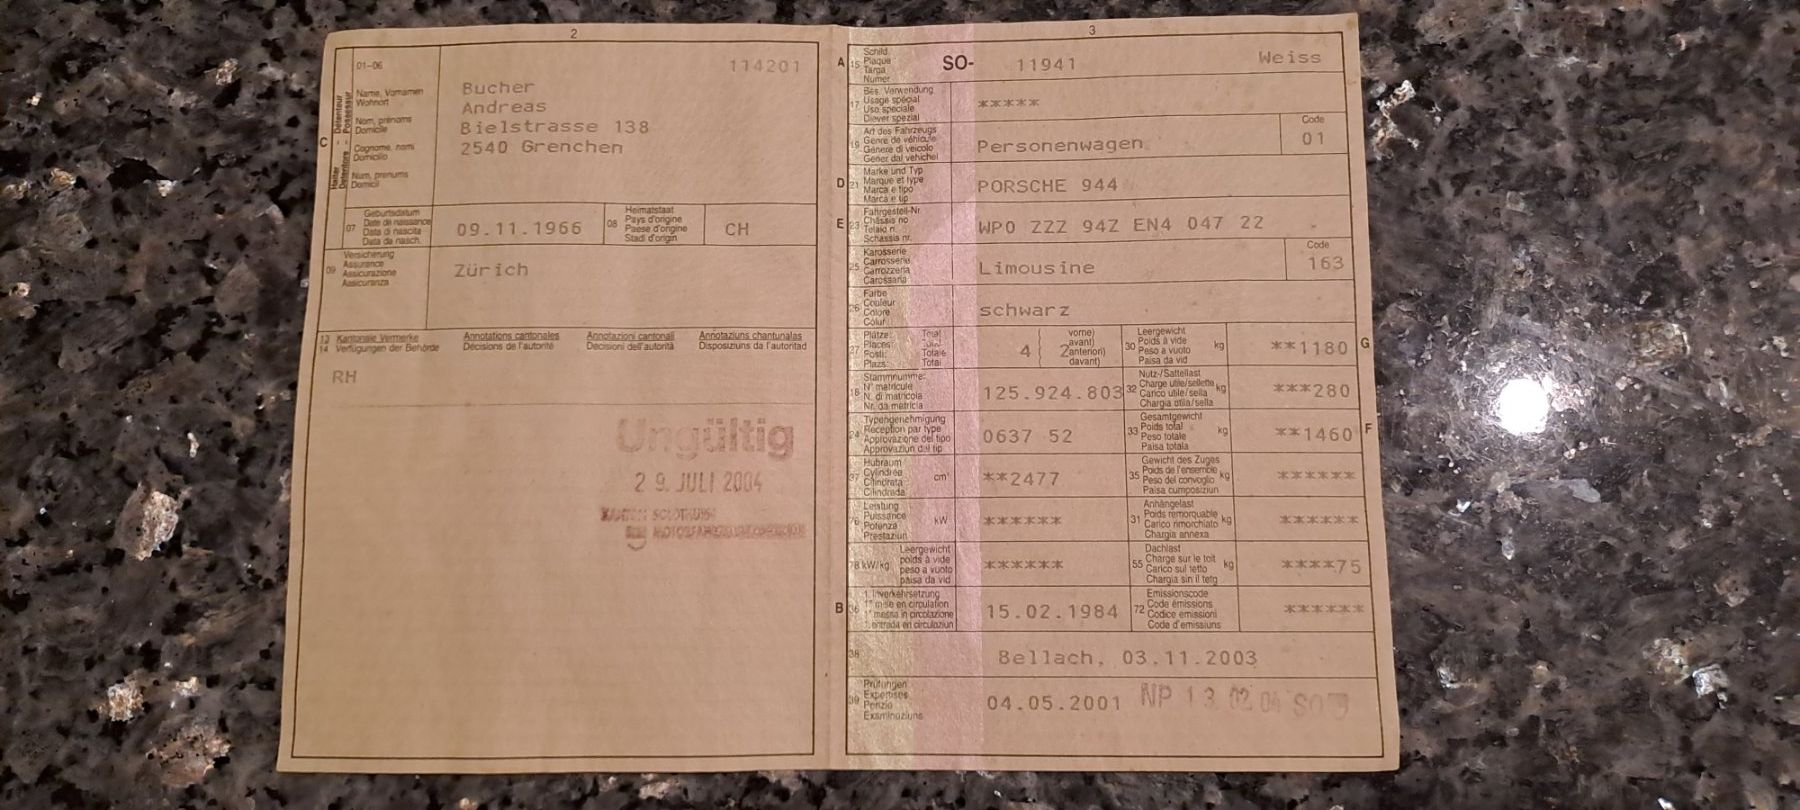 2
01-06
114201
Name, Vornamen
Wohnort
Nom, prénoms
Domicile
Cognome, nomi
Domicilio
Num, prenums
Domicil
C
Halter Détenteur
Detentore Possessur
Bucher
Andreas
Bielstrasse 138
2540 Grenchen
07
Geburtsdatum
Date de naissance
Data di nascita
Data da nasch.
09.11.1966
08
Heimatstaat
Pays d'origine
Paese d'origine
Stadi d'origin
CH
09
Versicherung
Assurance
Assicurazione
Assicuranza
Zürich
13 Kantonale Vermerke Annotations cantonales Annotazioni cantonali Annotaziuns chantunalas
14 Verfügungen der Behörde Décisions de l'autorité Decisioni dell'autorità Disposiziuns da l'autoritad
RH
Ungültig
29. JULI 2004
3
A
15
Schild
Plaque
Targa
Numer
SO- 11941 Weiss
17
Bes. Verwendung
Usage spécial
Uso speciale
Diever spezial
*****
19
Art des Fahrzeugs
Genre de véhicule
Genere di veicolo
Gener dal vehichel
Personenwagen
Code
01
D
21
Marke und Typ
Marque et type
Marca e tipo
Marca e tip
PORSCHE 944
E
23
Fahrgestell-Nr.
Châssis no
Telaio n.
Schassis nr.
WP0 ZZZ 94Z EN4 047 22
25
Karosserie
Carrosserie
Carrozzeria
Carossaria
Limousine
Code
163
26
Farbe
Couleur
Colore
Colur
schwarz
27
Plätze: Total
Places: Total
Posti: Totale
Plazs: Total
4 ( 2
vorne)
avant)
anteriori)
davant)
30
Leergewicht
Poids à vide
Peso a vuoto
Paisa da vid
kg
**1180
G
18
Stammnummer
N° matricule
N. di matricola
Nr. da matricla
125.924.803
32
Nutz-/Sattellast
Charge utile/sellette
Carico utile/sella
Chargia utila/sella
kg
***280
24
Typengenehmigung
Réception par type
Approvazione del tipo
Approvaziun dal tip
0637 52
33
Gesamtgewicht
Poids total
Peso totale
Paisa totala
kg
**1460
F
37
Hubraum
Cylindrée
Cilindrata
Cilindrada
cm³
**2477
35
Gewicht des Zuges
Poids de l'ensemble
Peso del convoglio
Paisa cumposiziun
kg
******
76
Leistung
Puissance
Potenza
Prestaziun
kW
******
31
Anhängelast
Poids remorquable
Carico rimorchiato
Chargia annexa
kg
******
78 kW/kg
Leergewicht
poids à vide
peso a vuoto
paisa da vid
******
55
Dachlast
Charge sur le toit
Carico sul tetto
Chargia sin il tetg
kg
****75
B
36
1. Inverkehrsetzung
1re mise en circulation
1a messa in circolazione
1. entrada en circulaziun
15.02.1984
72
Emissionscode
Code émissions
Codice emissioni
Code d'emissiuns
******
38
Bellach, 03.11.2003
39
Prüfungen
Expertises
Perizie
Examinaziuns
04.05.2001 NP 13. 02. 04 SO